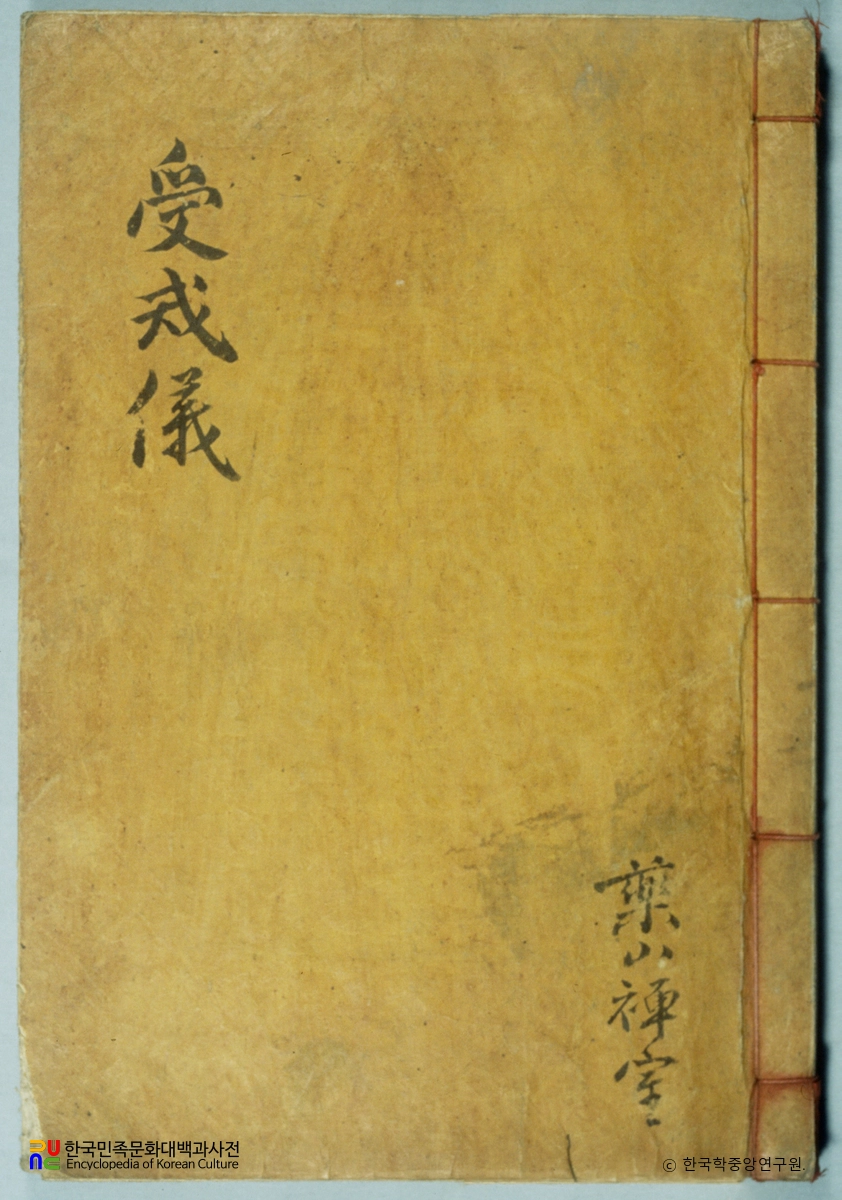 受戒儀
藥山禪室
한국민족문화대백과사전
Encyclopedia of Korean Culture
© 한국학중앙연구원.